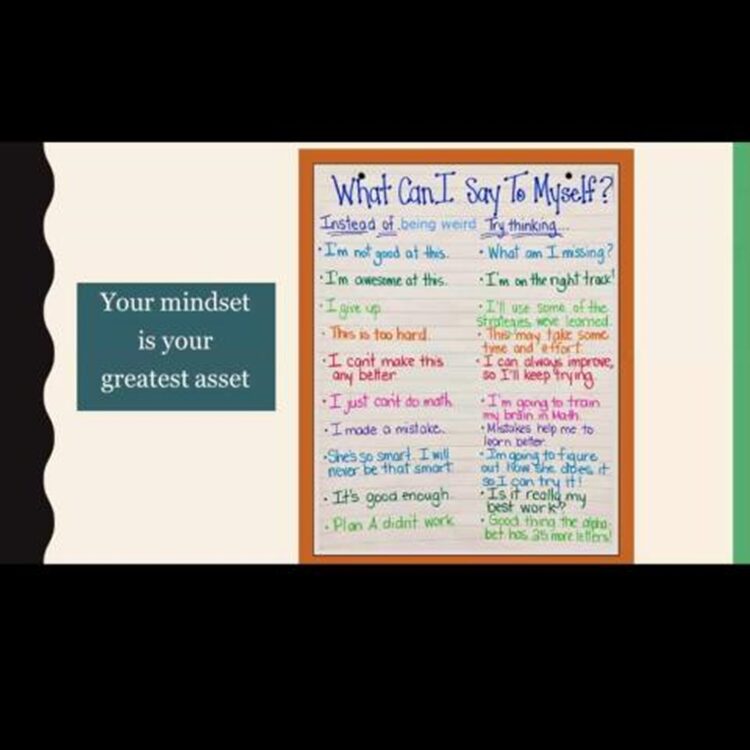 Your mindset
is your
greatest asset
What Can I Say To Myself?
Instead of being weird Try thinking...
• I'm not good at this. • What am I missing?
• I'm awesome at this. • I'm on the right track!
• I give up. • I'll use some of the
strategies we've learned.
• This is too hard. • This may take some
time and effort.
• I can't make this • I can always improve,
any better. so I'll keep trying.
• I just can't do math. • I'm going to train
my brain in Math.
• I made a mistake. • Mistakes help me to
learn better.
• She's so smart. I will • I'm going to figure
never be that smart. out how she does it
so I can try it!
• It's good enough. • Is it really my
best work?
• Plan A didn't work. • Good thing the alpha-
bet has 35 more letters!